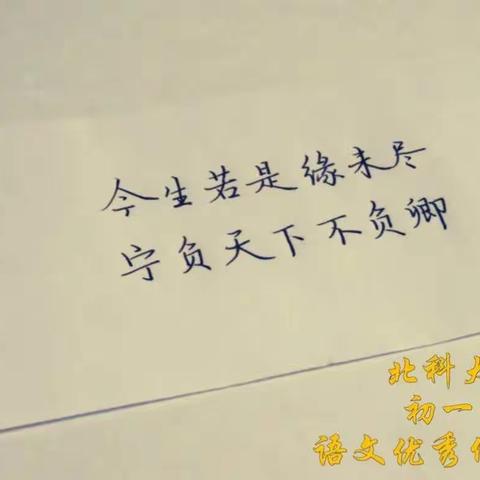 今生若是缘未尽
宁负天下不负卿
北科大
初一
语文优秀作